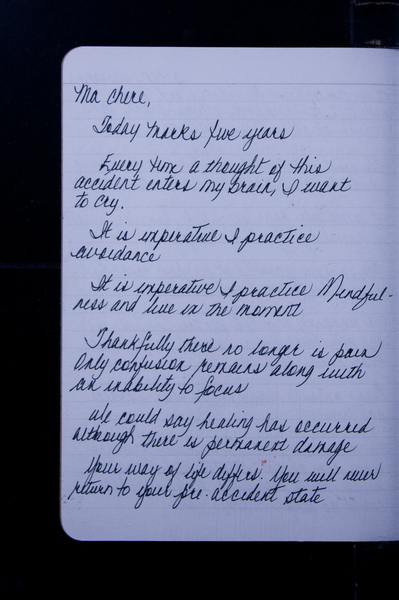 Ma chere,
Today marks five years
Every time a thought of this
accident enters my brain, I want
to cry.
It is imperative I practice
avoidance
It is imperative I practice Mindful-
ness and live in the moment
Thankfully there no longer is pain
Only confusion remains along with
an inability to focus
We could say healing has occurred
although there is permanent damage
Your way of life differs. You will never
return to your pre-accident state